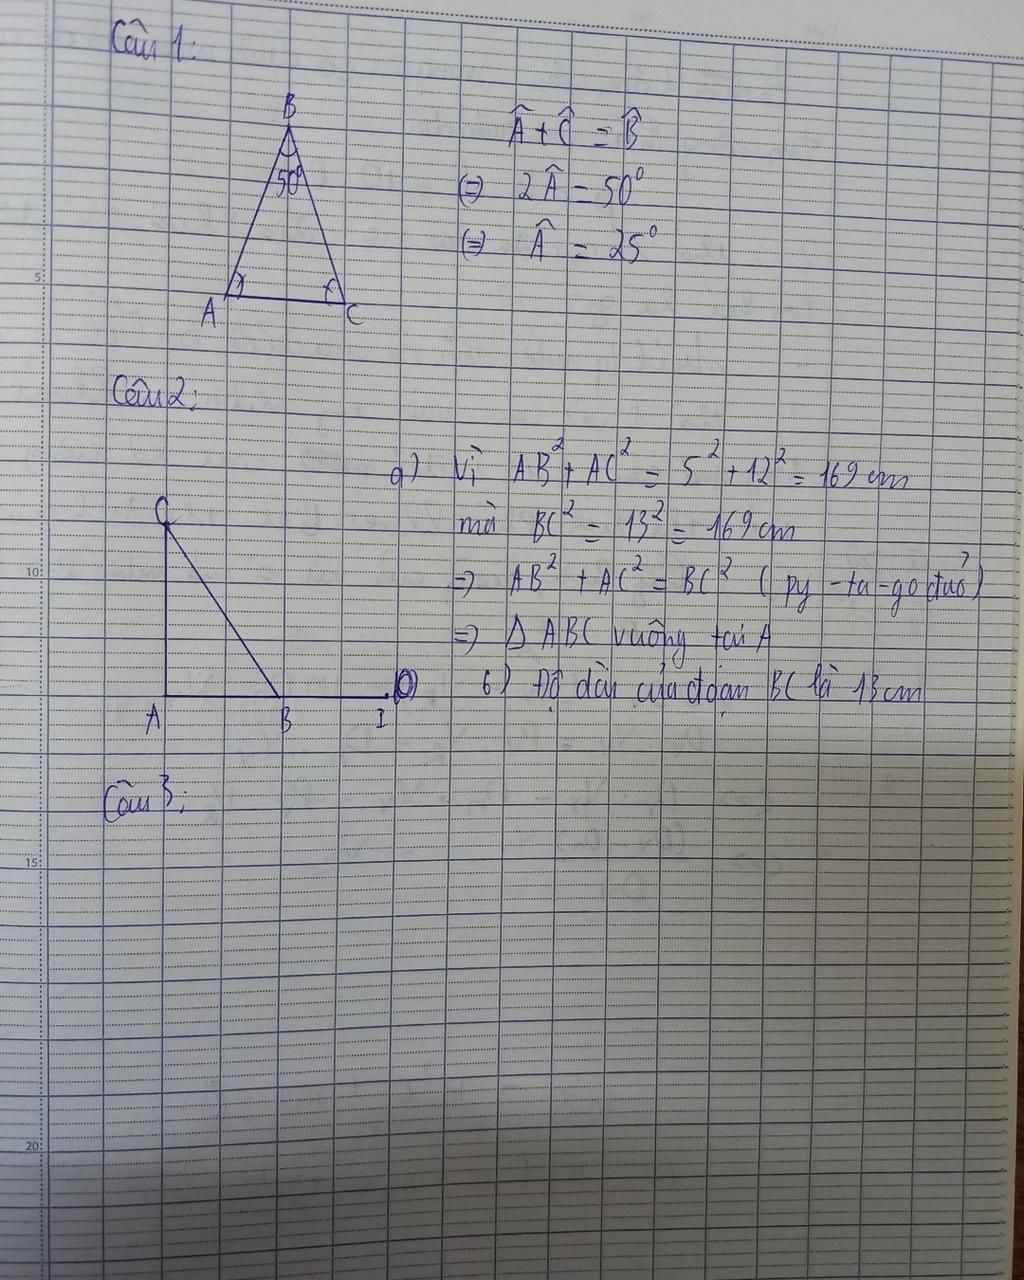 Câu 1:
B
50°
A
C
Â + Ĉ = B̂
(=) 2Â = 50°
(=) Â = 25°
5
Câu 2:
C
A
B
I
a) Vì AB² + AC² = 5² + 12² = 169 cm
mà BC² = 13² = 169 cm
10
=> AB² + AC² = BC² ( py - ta - go đảo )
=> Δ ABC vuông tại A
b) Độ dài của đoạn BC là 13 cm
Câu 3:
15
20